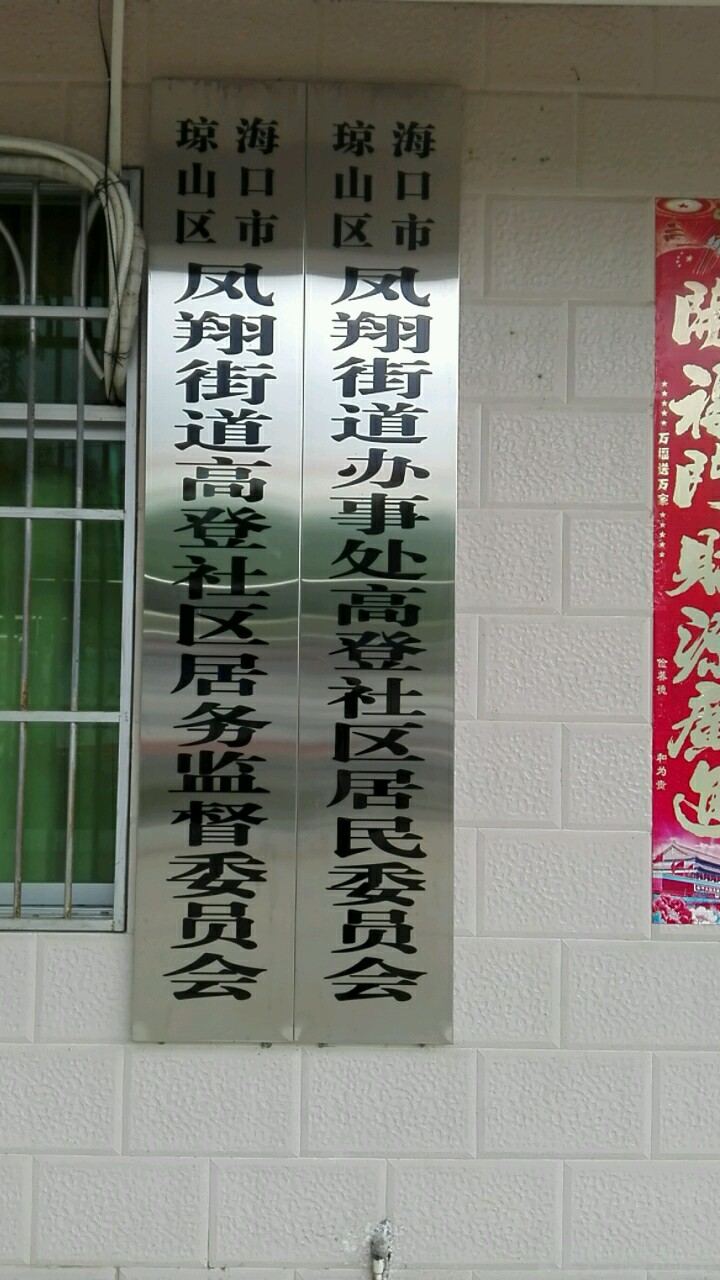 海口市
琼山区
凤翔街道办事处高登社区居民委员会
海口市
琼山区
凤翔街道高登社区居务监督委员会
開福門財源廣進
万福送万家
和为贵